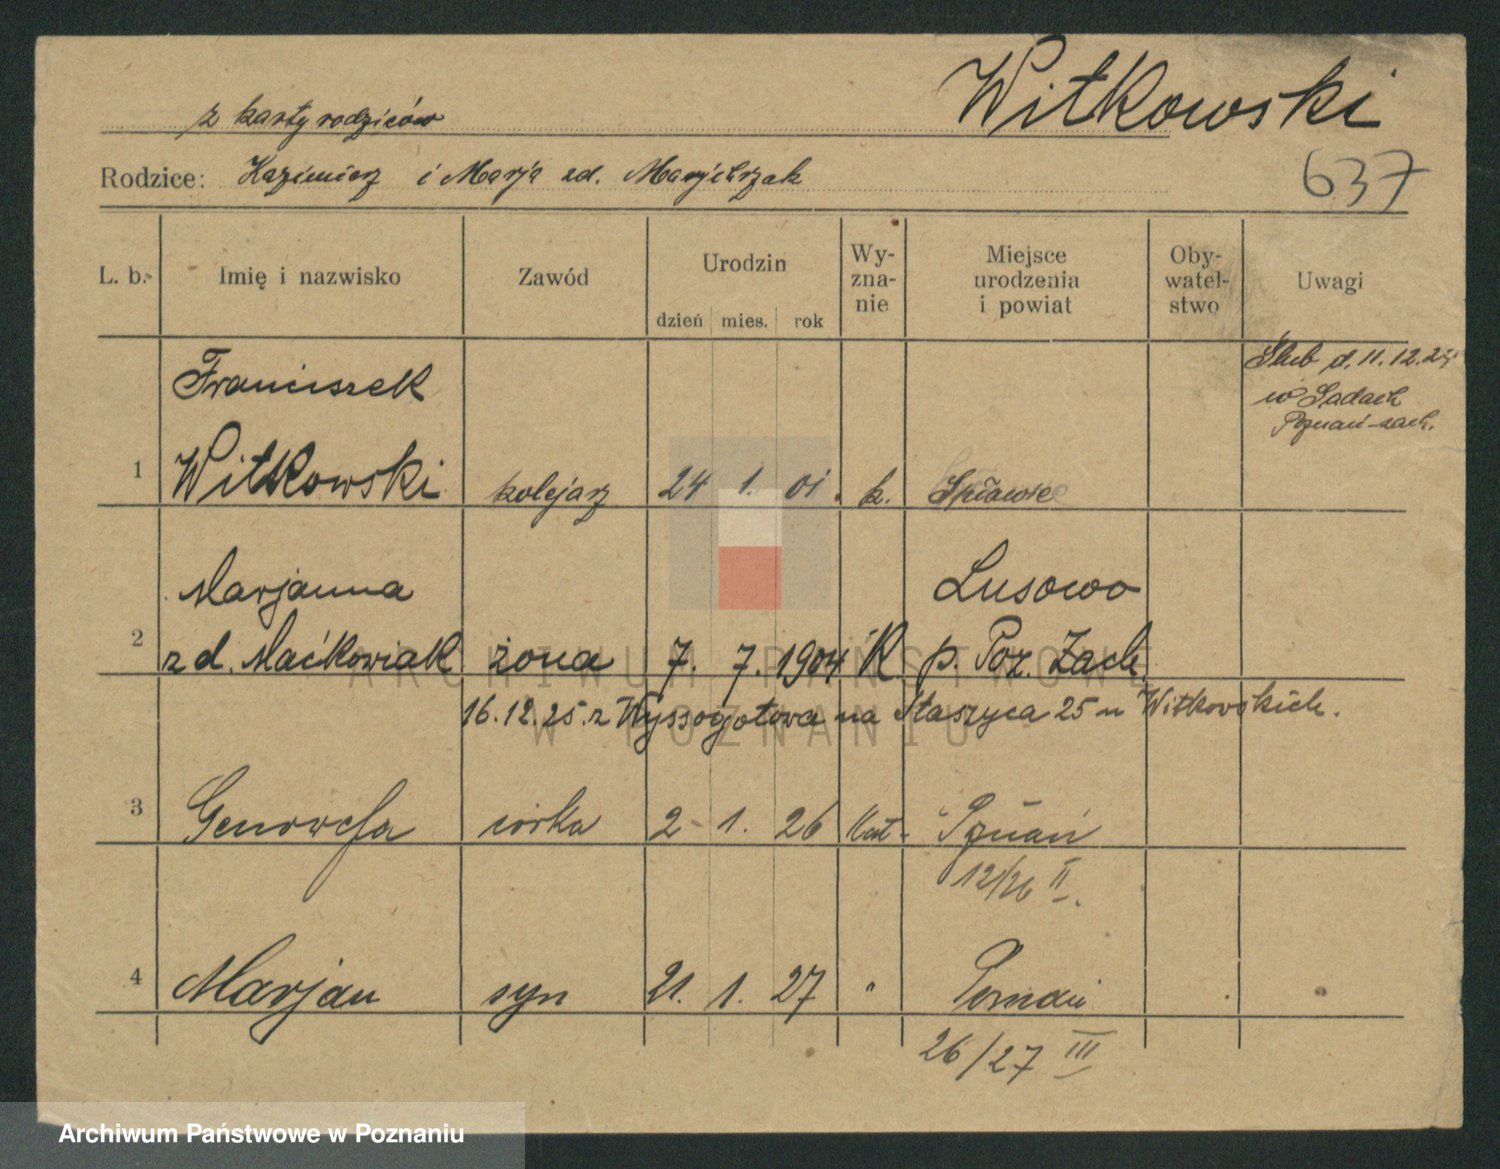 Witkowski
z karty rodziców
637
Rodzice: Kazimierz i Marja zd. Marcich­rzak
L. b. Imię i nazwisko Zawód Urodzin Wy-zna-nie Miejsce urodzenia i powiat Oby-watel-stwo Uwagi
dzień mies. rok
Franciszek
Ślub d. 11.12.24
w Sadach
Poznań-zach.
1 Witkowski kolejarz 24 1. 01. k. Spławie
Marjanna Lusowo
2 zd. Maćkowiak żona 7. 7. 1904 K. p. Poz. Zach.
16.12.25. z Wyssogotowa na Staszyca 25 u Witkowskich.
3 Genowefa córka 2 1. 26 kat- Poznań
12/26 II.
4 Marjan syn 21. 1. 27 " Poznań
26/27 III
ARCHIWUM PAŃSTWOWE
W POZNANIU
Archiwum Państwowe w Poznaniu